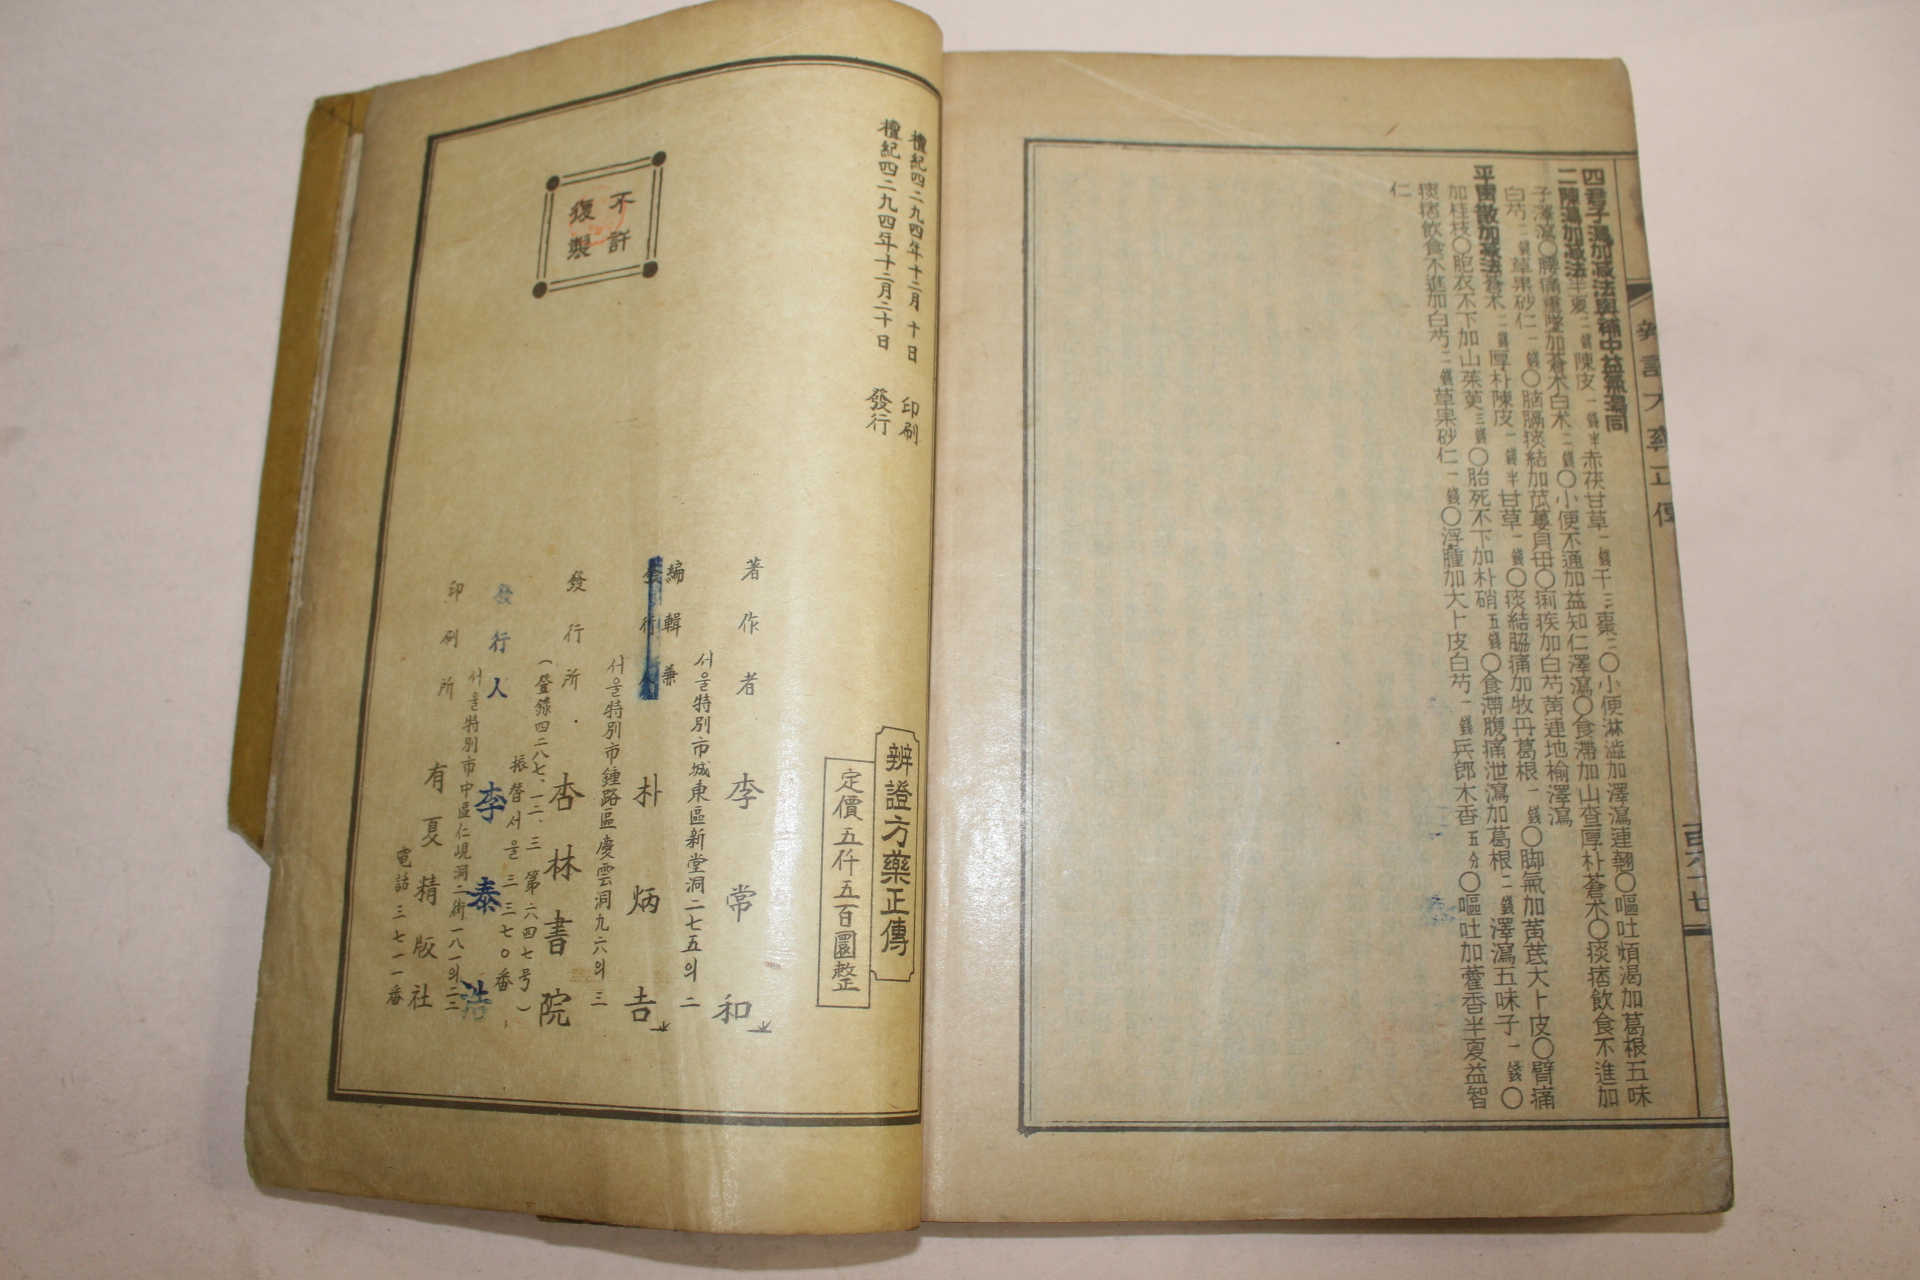 四君子湯加减法與補中益氣湯同
二陳湯加减法半夏二錢陳皮一錢半赤茯甘草一錢干三棗二〇小便淋澁加澤瀉連翹〇嘔吐煩渴加葛根五味
子澤瀉〇腰痛重墜加蒼朮白朮二錢〇小便不通加益知仁澤瀉〇食滯加山査厚朴蒼朮〇痰痞飮食不進加
白芍二錢草果砂仁一錢〇脑膈痰結加苽蔞貝母〇痢疾加白芍黃連地榆澤瀉
平胃散加减法蒼朮二錢厚朴陳皮一錢半甘草一錢〇痰結脇痛加牧丹葛根一錢〇脚氣加黃芪大卜皮〇臂痛
加桂枝〇胞衣不下加山茱萸三錢〇胎死不下加朴硝五錢〇食滯腹痛泄瀉加葛根二錢澤瀉五味子一錢〇
痰痞飮食不進加白芍二錢草果砂仁一錢〇浮腫加大卜皮白芍一錢兵郎木香五分〇嘔吐加藿香半夏益智
仁
檀紀四二九四年十二月十日 印刷
檀紀四二九四年十二月二十日 發行
不許
復製
辨證方藥正傳
定價五仟五百圜整
著作者 李常和
서울特別市城東區新堂洞二七五의二
編輯兼
發行人 朴炳吉
서울特別市鍾路區慶雲洞九六의三
發行所 杏林書院
(登錄四二八七、一二、三 第六四七号)
振替서울三三七〇番
發行人 李泰浩
서울特別市中區仁峴洞二街一八一의二二
印刷所 有夏精版社
電話三七一一番